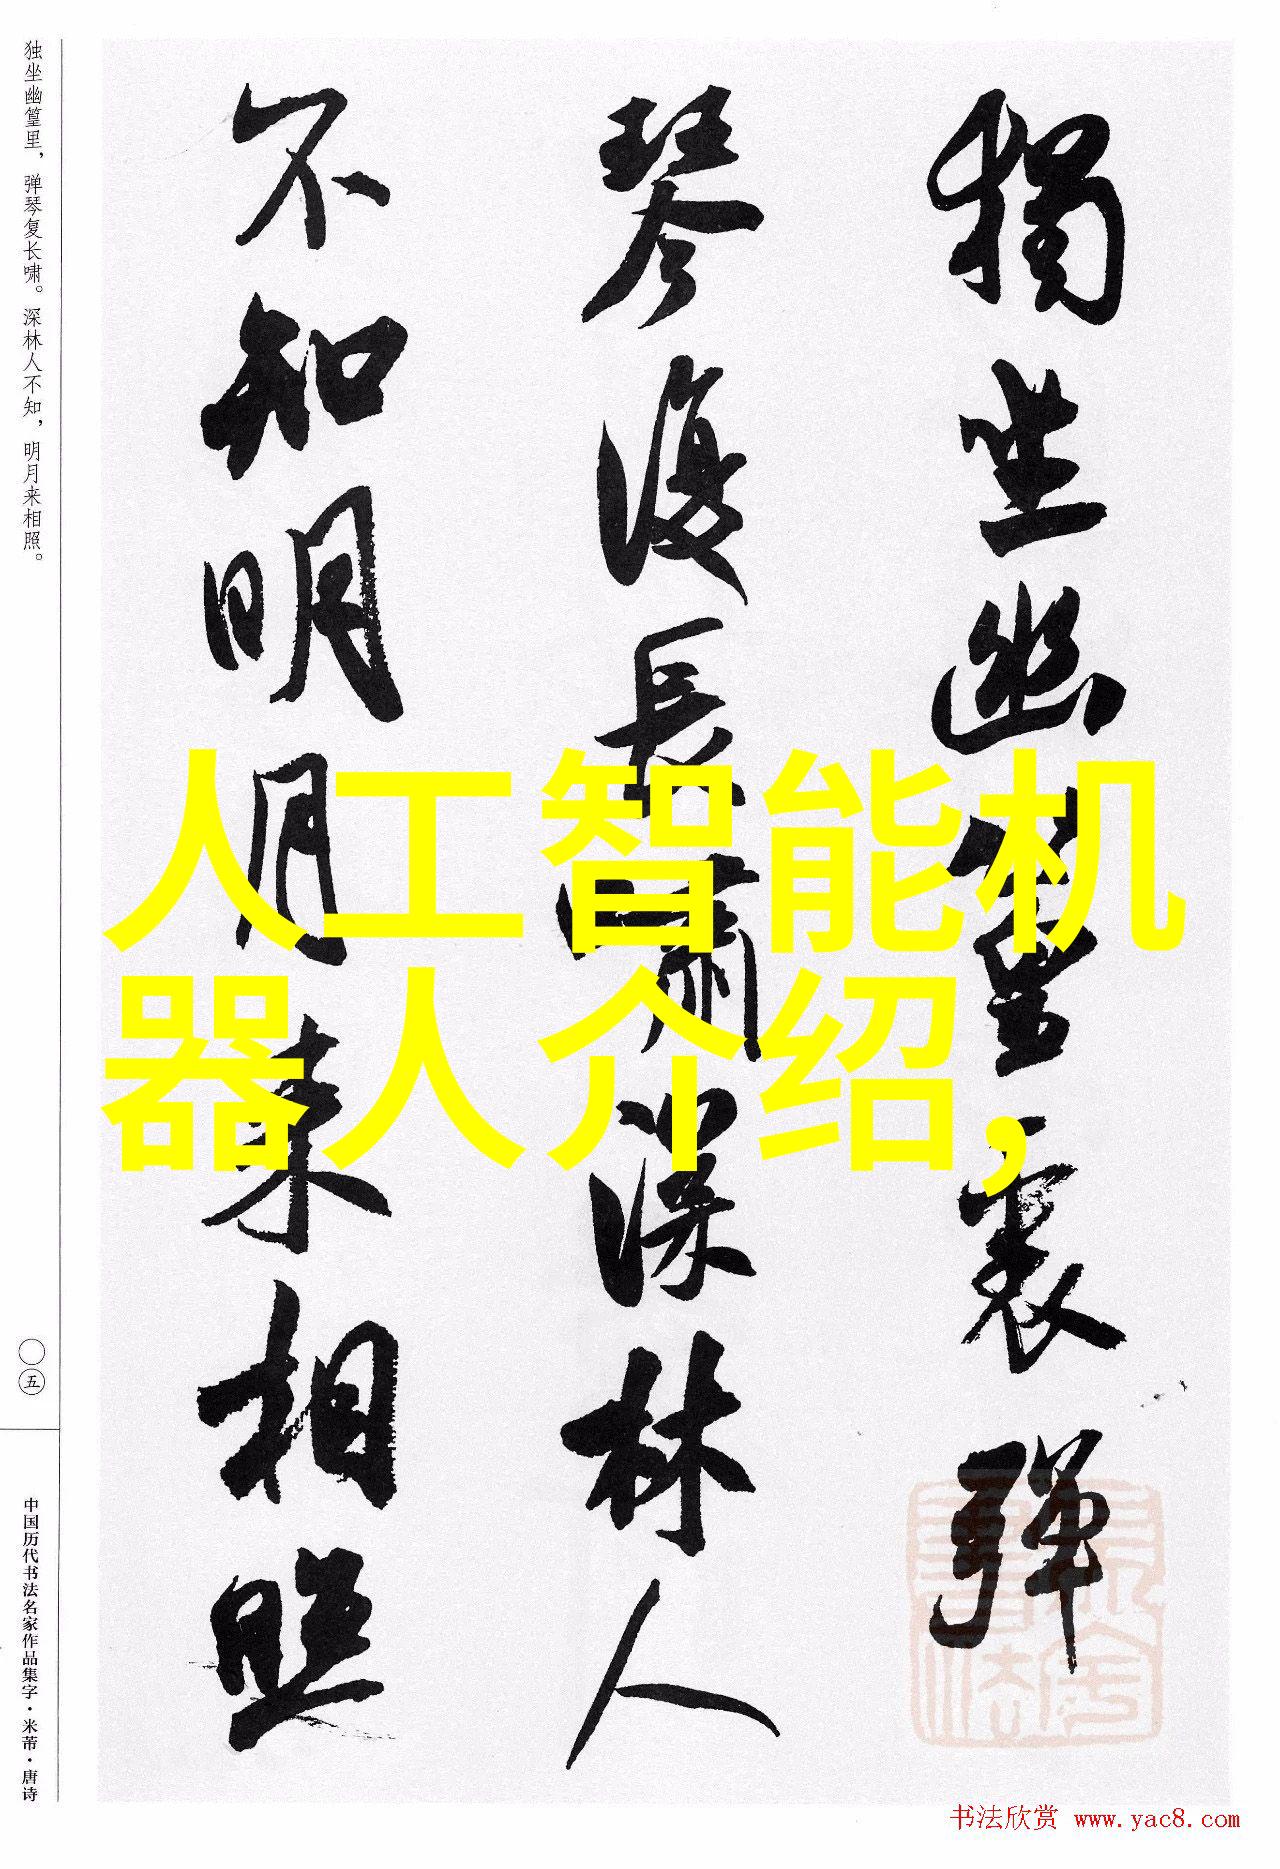 獨坐幽篁裏彈
琴復長嘯深林人
不知明月来相照
人工智能机
器人介绍，
独坐幽篁里，弹琴复长啸。深林人不知，明月来相照。
〇五
中国历代书法名家作品集字·米芾·唐诗
书法欣赏 www.yac8.com